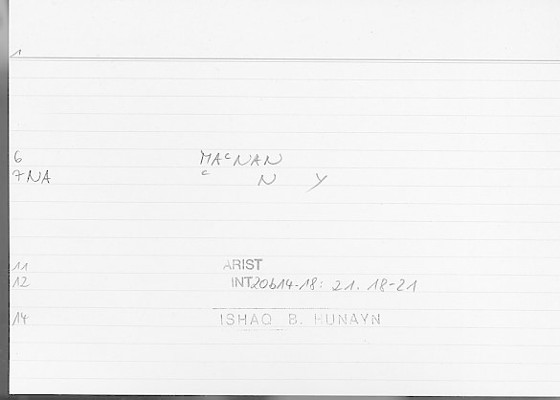 1
6 MAᶜNAN
7NA ᶜ N Y
11 ARIST
12 INT20b14-18: 21. 18-21
14 ISHAQ B. HUNAYN